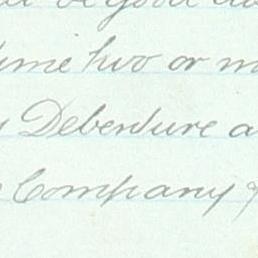 be good
time two or m
Debenture a
Company &